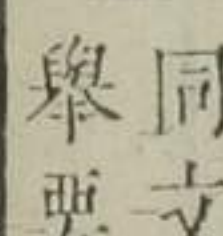 同文
舉要